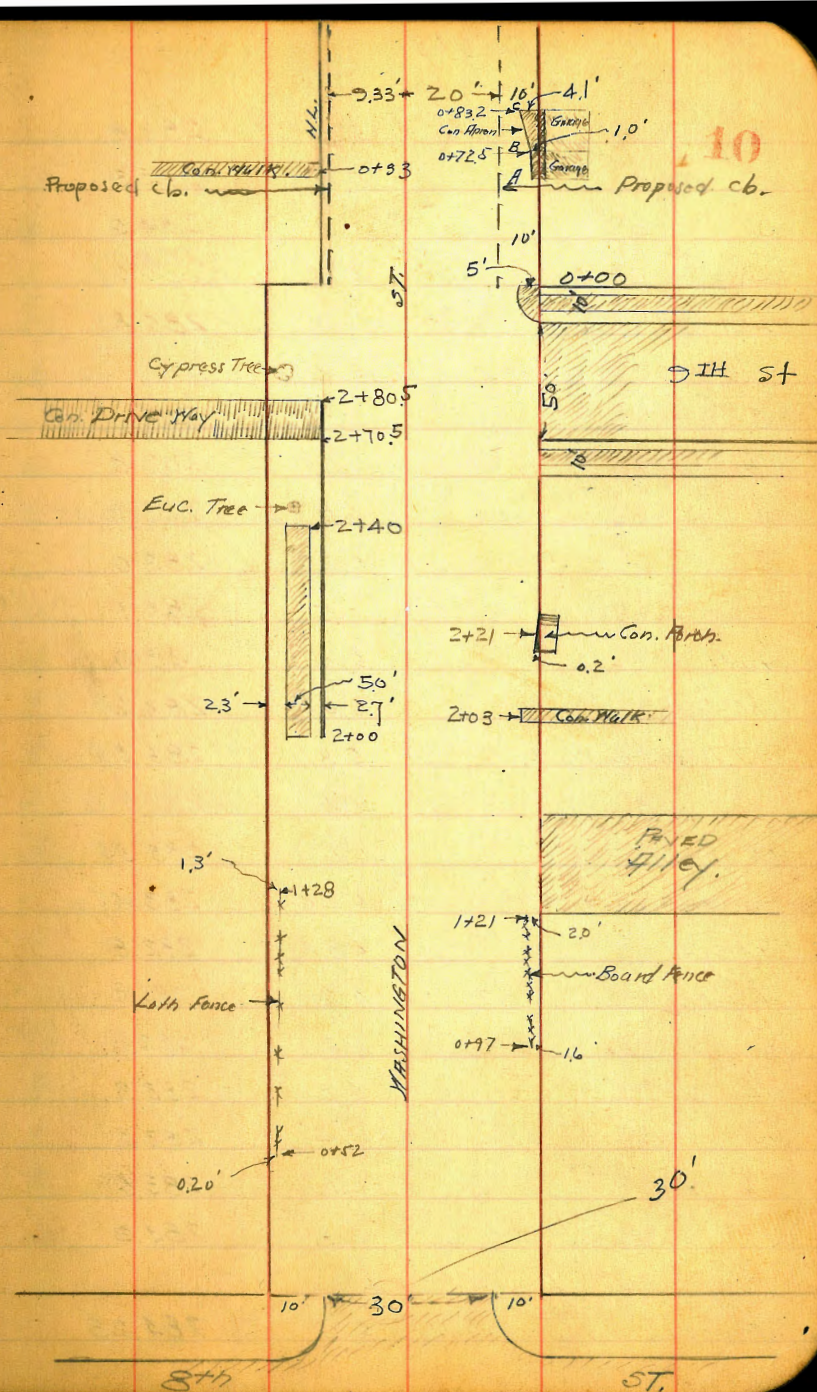 10
N.L.
9.33' 20' 10' 4.1'
0+83.2 C
Con Apron
Garage
B 1.0'
0+72.5
Garage
A
Con. Walk. 0+93
Proposed cb.
Proposed cb.
10'
5' 0+00
10'
ST.
Cypress Tree
9TH St
50'
2+80.5
Con. Drive Way
2+70.5
10'
Euc. Tree
2+40
2+21 Con. Porch.
0.2'
5.0'
2.3' 2.7'
2+00
2+03 Con. Walk
PAVED
Alley.
1.3'
1+28
1+21 2.0'
Board Fence
Lath Fence
WASHINGTON
0+97 1.6'
0+52
0.20'
30'
10' 30' 10'
8th ST.